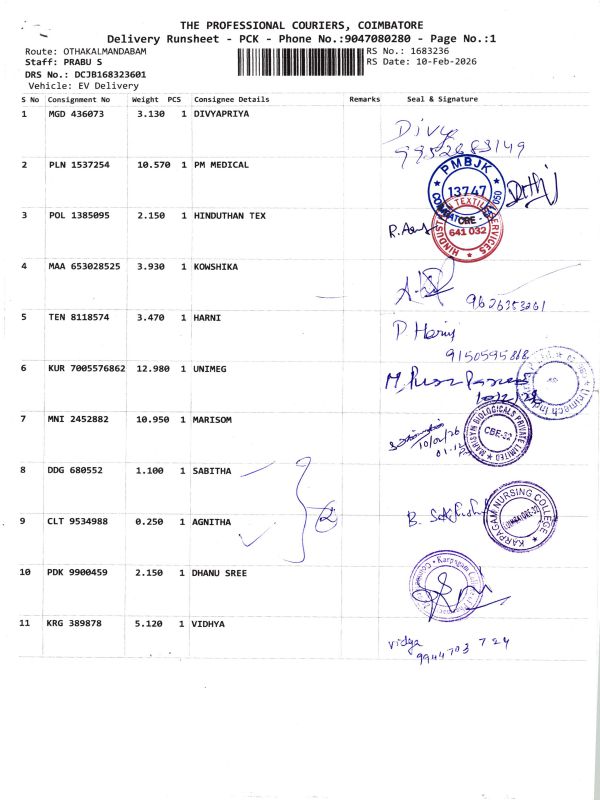 THE PROFESSIONAL COURIERS, COIMBATORE
Delivery Runsheet - PCK - Phone No.:9047080280 - Page No.:1
Route: OTHAKALMANDABAM RS No.: 1683236
Staff: PRABU S RS Date: 10-Feb-2026
DRS No.: DCJB168323601
Vehicle: EV Delivery
S No Consignment No Weight PCS Consignee Details Remarks Seal & Signature
1 MGD 436073 3.130 1 DIVYAPRIYA
Divy
9952683149
2 PLN 1537254 10.570 1 PM MEDICAL
PMBJK
13747
3 POL 1385095 2.150 1 HINDUTHAN TEX
641 032
4 MAA 653028525 3.930 1 KOWSHIKA
9626353261
5 TEN 8118574 3.470 1 HARNI
P Harnij
9150595868
6 KUR 7005576862 12.980 1 UNIMEG
7 MNI 2452882 10.950 1 MARISOM
MARISYN BIOLOGICALS PRIVATE LIMITED
CBE-32
10/02/26
8 DDG 680552 1.100 1 SABITHA
9 CLT 9534988 0.250 1 AGNITHA
2
KARPAGAM NURSING COLLEGE
COIMBATORE-32
10 PDK 9900459 2.150 1 DHANU SREE
11 KRG 389878 5.120 1 VIDHYA
vidya
9944703 724